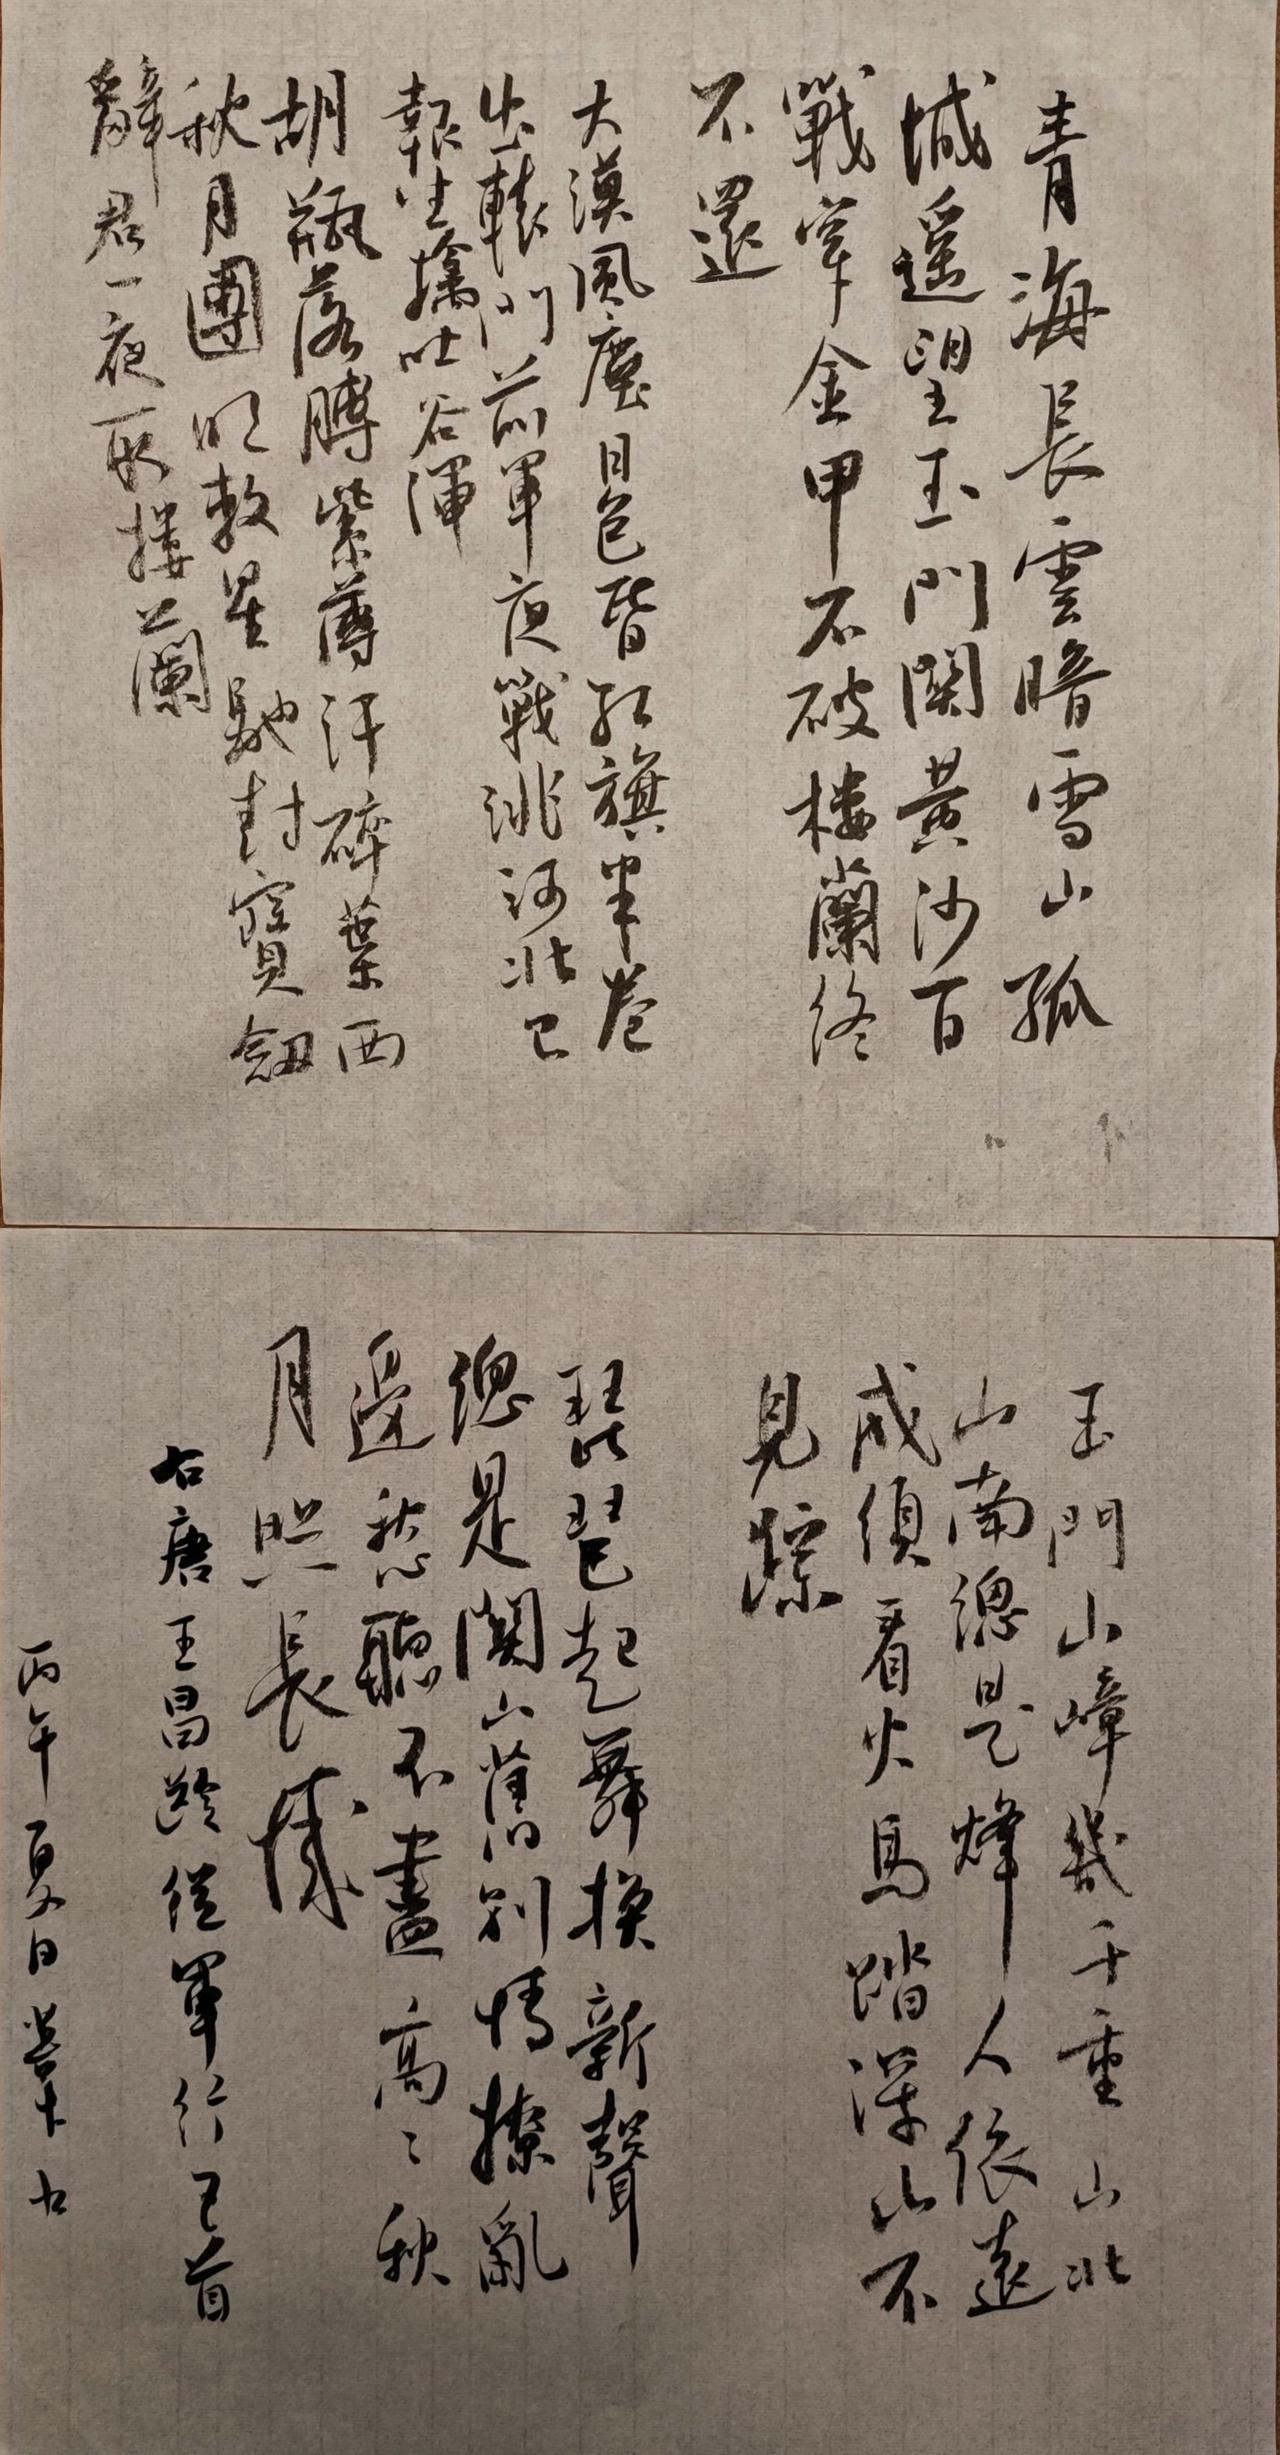 青海長雲暗雪山孤
城遥望玉門關黃沙百
戰穿金甲不破楼蘭終
不還
大漠風塵日色昏红旗半卷
出轅門前軍夜戰洮河北已
報生擒吐谷渾
胡瓶落膊紫薄汗碎葉西
秋月團明敕星馳封寶劒
辭君一夜取楼蘭
玉門山嶂幾千重山北
山南總是烽人依遠
戍須看火馬踏深山不
見蹤
琵琶起舞換新聲
總是關山舊別情撩亂
邊愁聽不盡高〻秋
月照長城
右唐王昌齡從軍行五首
丙午夏日